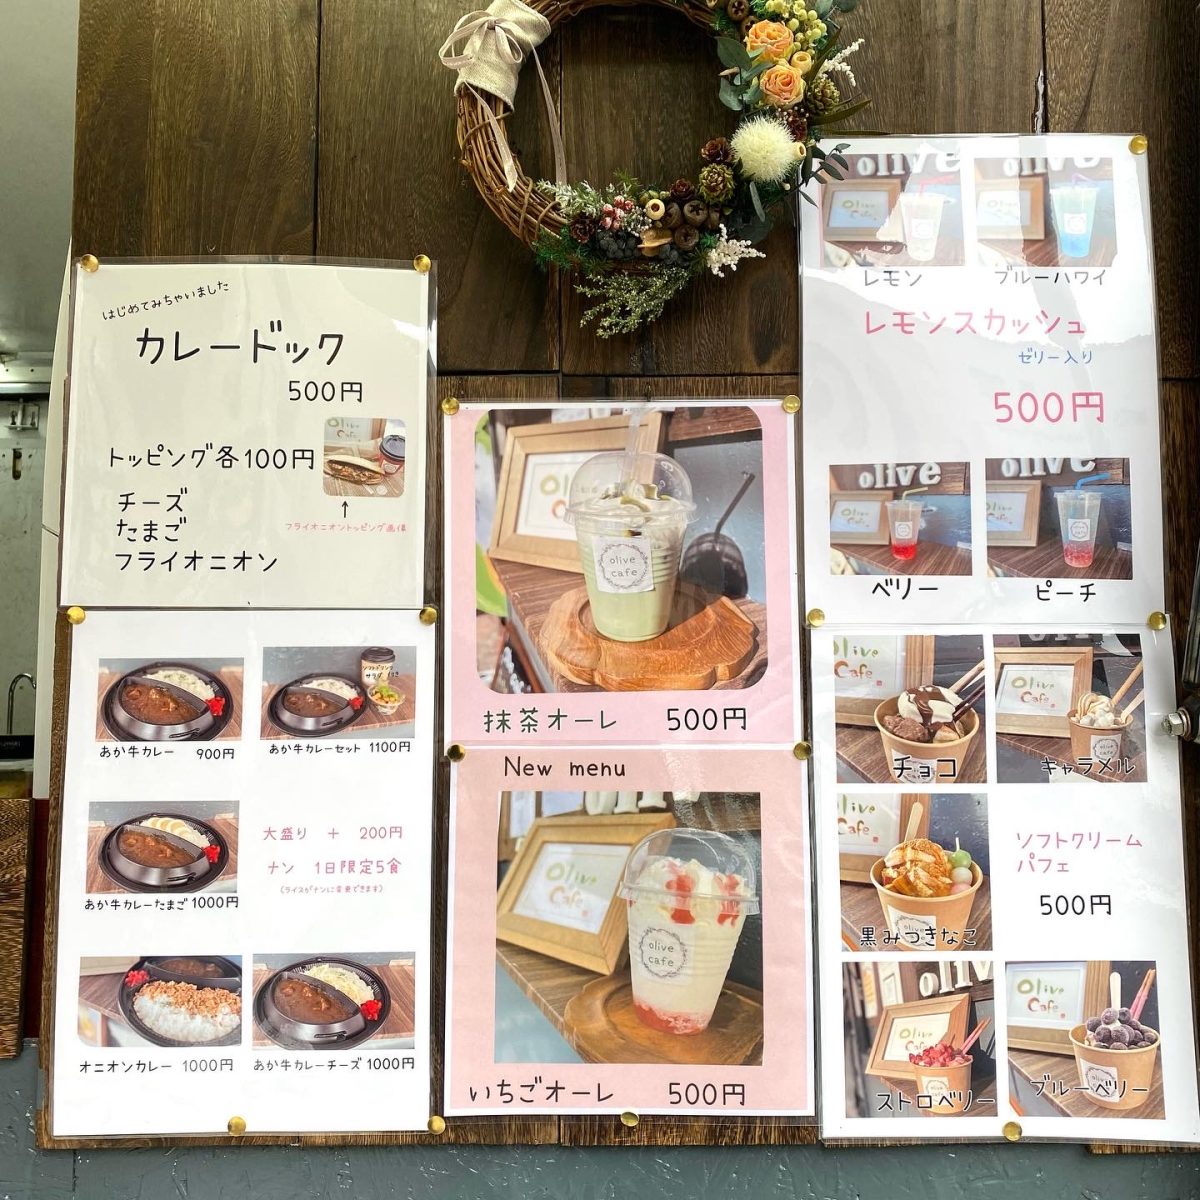 はじめてみちゃいました
カレードック
500円
トッピング各100円
チーズ
たまご
フライオニオン
Olive
Cafe
↑
フライオニオントッピング画像
あか牛カレー 900円
ソフトドリンク
サラダ付き
あか牛カレーセット 1100円
あか牛カレーたまご 1000円
大盛り + 200円
ナン 1日限定5食
(ライスがナンに変更できます)
オニオンカレー 1000円
あか牛カレーチーズ 1000円
olive
cafe
抹茶オーレ 500円
New menu
Olive
olive
cafe
いちごオーレ 500円
olive
Olive
Cafe
レモン
olive
ブルーハワイ
レモンスカッシュ
ゼリー入り
500円
olive
Olive
Cafe
ベリー
olive
Olive
Cafe
ピーチ
Olive
Cafe
チョコ
Olive
Cafe
キャラメル
Olive
Cafe
黒みつきなこ
ソフトクリーム
パフェ
500円
olive
Olive
Cafe
ストロベリー
Olive
Cafe
ブルーベリー